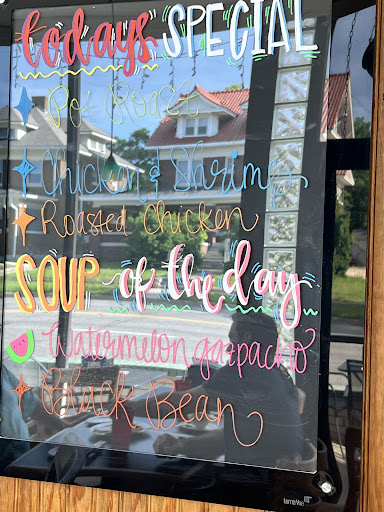 todays SPECIAL
Pot Roast
Chicken & Shrimp
Roasted Chicken
SOUP of the day
Watermelon gazpacho
Black Bean